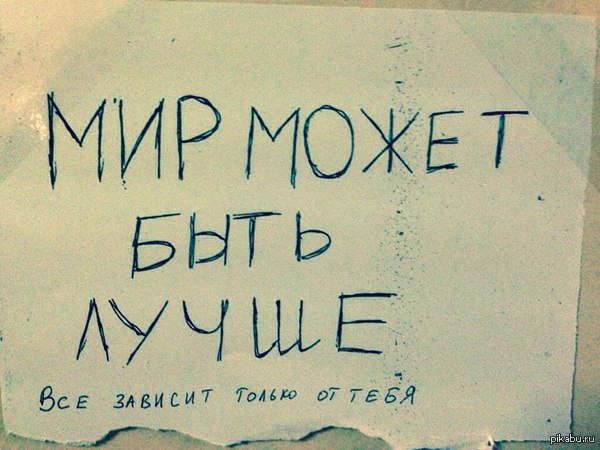 МИР МОЖЕТ
БЫТЬ
ЛУЧШЕ
ВСЕ ЗАВИСИТ ТОЛЬКО ОТ ТЕБЯ
pikabu.ru